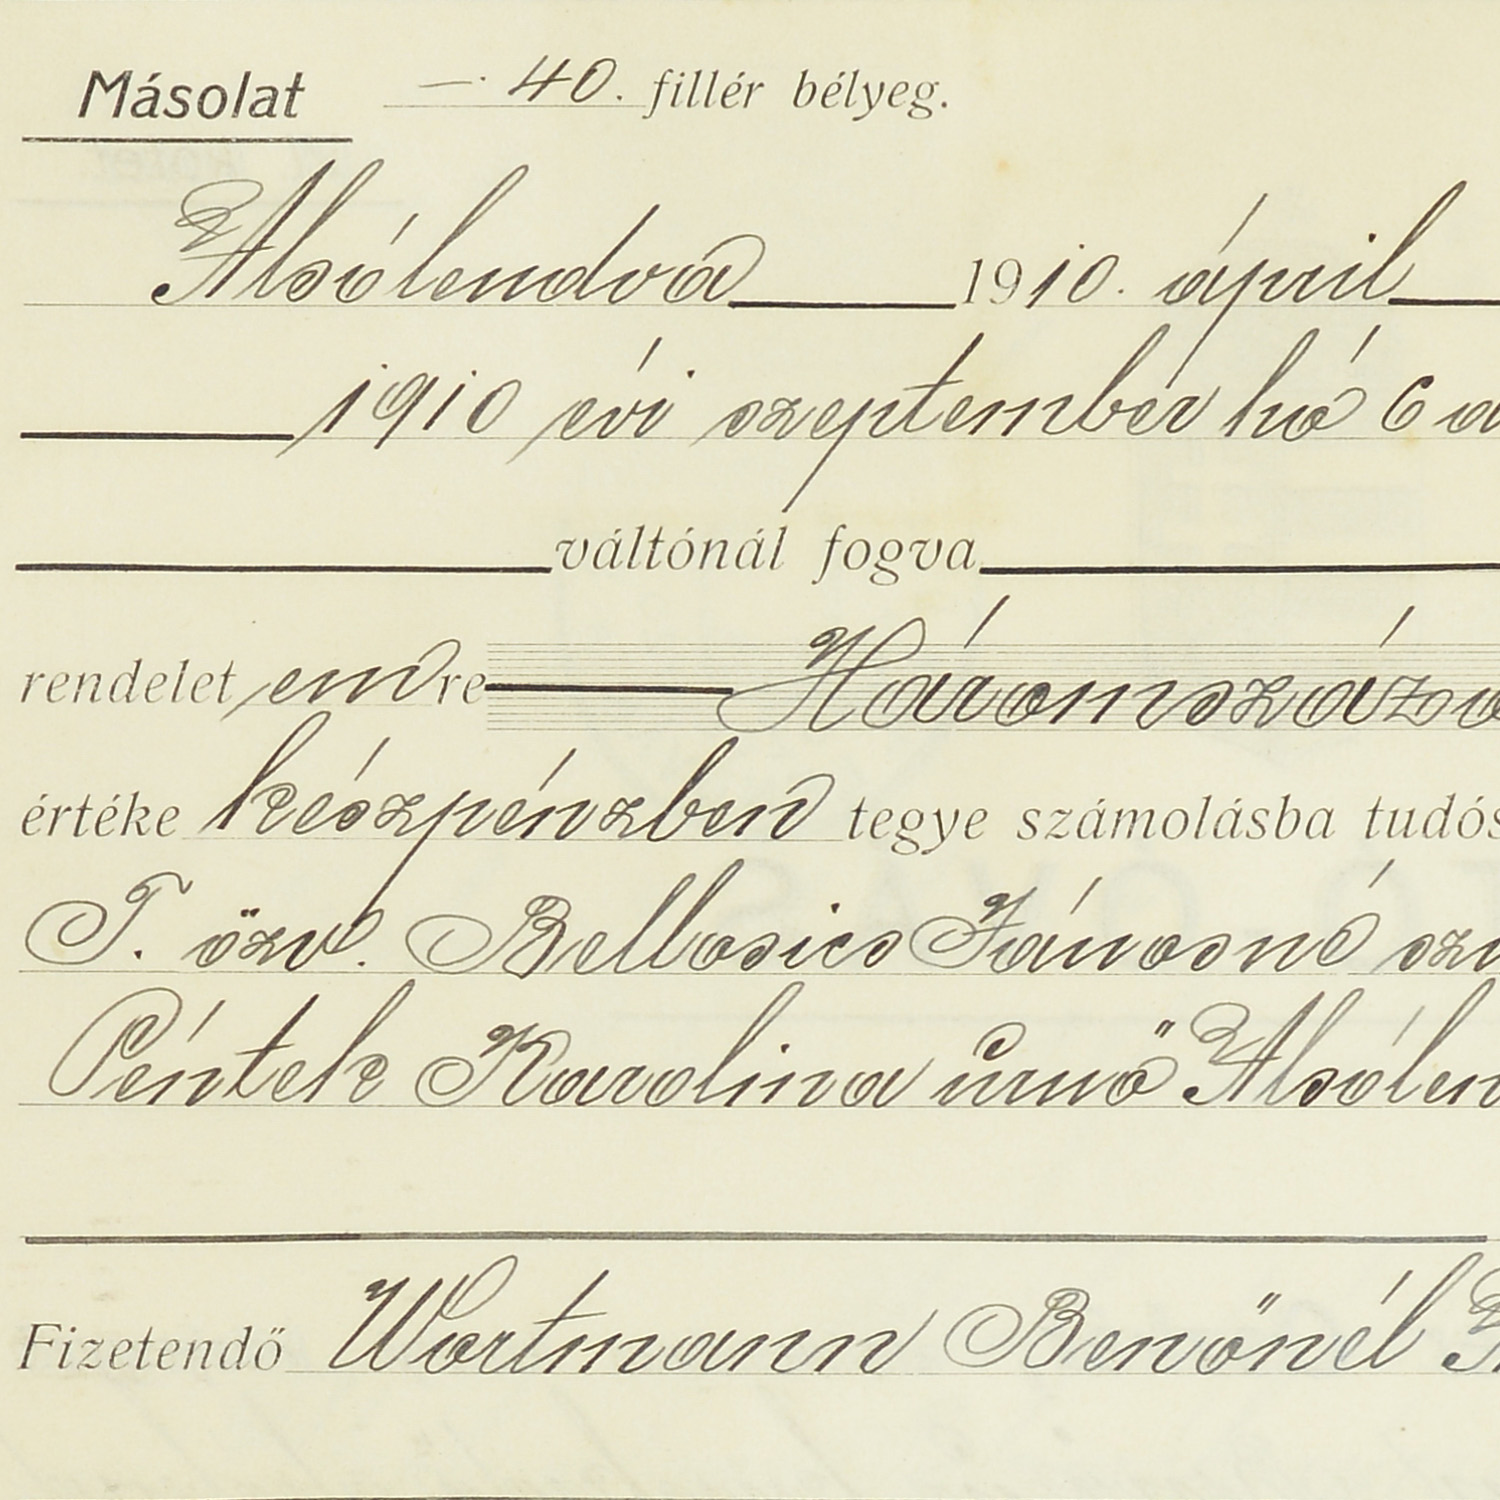 Másolat —. 40. fillér bélyeg.
Alsólendva 1910. április
1910 évi szeptember hó 6 a
váltónál fogva
rendelet emre Háromszáz
értéke készpénzben tegye számolásba tudós
T. özv. Bellosics Jánosné szü
Péntek Karolina úrnő Alsólen
Fizetendő Wortmann Benőnél